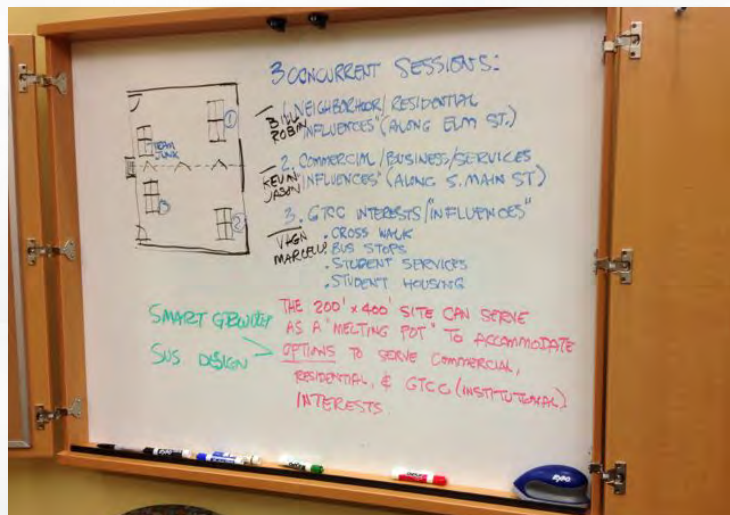 3 CONCURRENT SESSIONS:
1. NEIGHBORHOOD/RESIDENTIAL
"INFLUENCES" (ALONG ELM ST.)
BILL
ROBIN
2. COMMERCIAL/BUSINESS/SERVICES
"INFLUENCES" (ALONG S. MAIN ST)
KEVIN
JASON
3. GTCC INTERESTS/"INFLUENCES"
• CROSS WALK
• BUS STOPS
• STUDENT SERVICES
• STUDENT HOUSING
MARCELLUS
TEAM
JUNK
1
2
3
SMART GROWTH
SUS DESIGN
THE 200' x 400' SITE CAN SERVE
AS A "MELTING POT" TO ACCOMMODATE
OPTIONS TO SERVE COMMERCIAL,
RESIDENTIAL, & GTCC (INSTITUTIONAL)
INTERESTS
EXPO